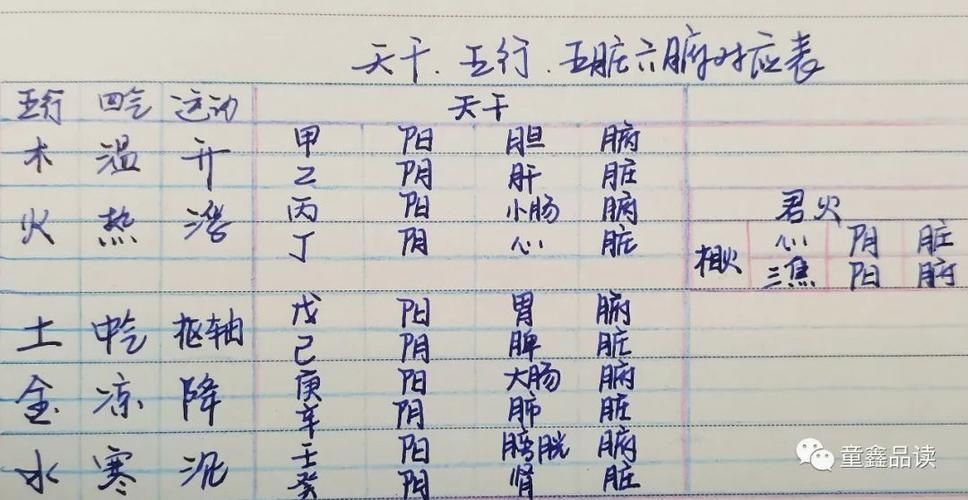 天干.五行.五脏六腑对应表
五行 四气 运动 天干
甲 阳 胆 腑
木 温 升
乙 阴 肝 脏
丙 阳 小肠 腑
火 热 浮
丁 阴 心 脏
君火
心 阴 脏
相火
三焦 阳 腑
戊 阳 胃 腑
土 中气 枢轴
己 阴 脾 脏
庚 阳 大肠 腑
金 凉 降
辛 阴 肺 脏
壬 阳 膀胱 腑
水 寒 沉
癸 阴 肾 脏
童鑫品读